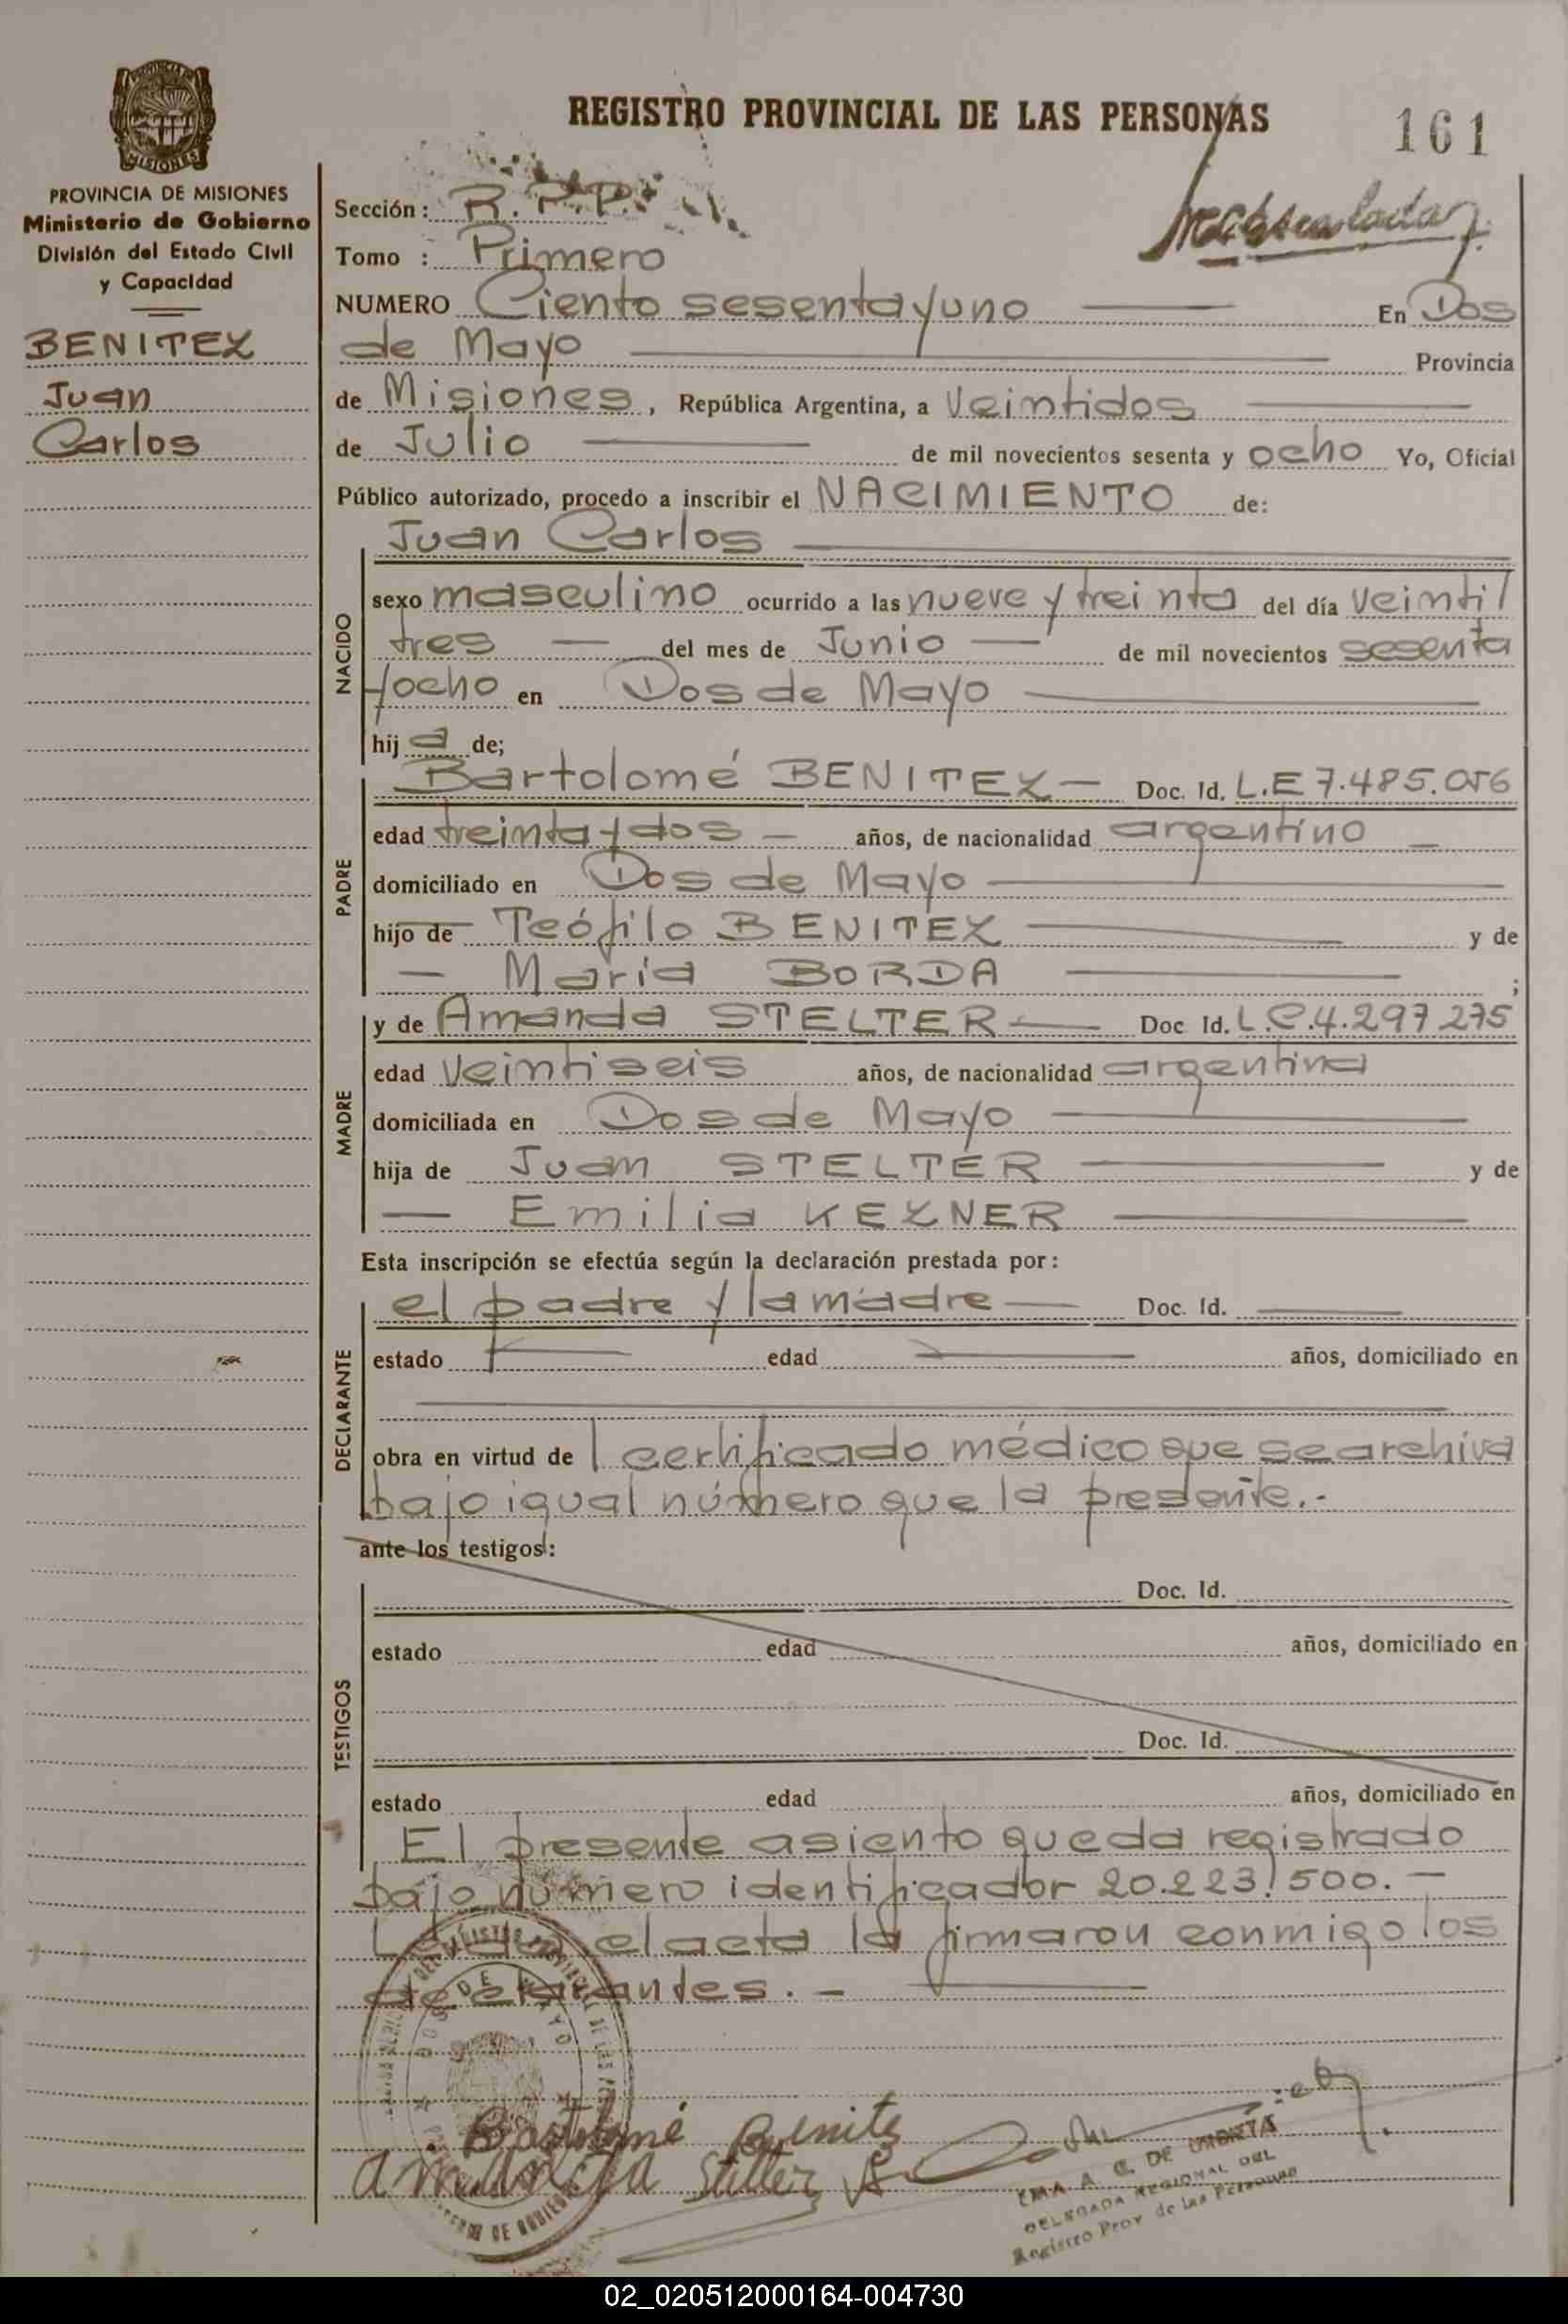 REGISTRO PROVINCIAL DE LAS PERSONAS
161
PROVINCIA DE MISIONES
MISIONES
PROVINCIA DE MISIONES
Ministerio de Gobierno
División del Estado Civil
y Capacidad
BENITEZ
Juan
Carlos
Sección: R.P.P.
Tomo : Primero
NUMERO Ciento sesenta y uno En Dos
de Mayo Provincia
de Misiones, República Argentina, a Veintidos
de Julio de mil novecientos sesenta y ocho Yo, Oficial
Público autorizado, procedo a inscribir el NACIMIENTO de:
Juan Carlos
NACIDO
sexo masculino ocurrido a las nueve y treinta del día veinti
tres del mes de Junio de mil novecientos sesenta
y ocho en Dos de Mayo
hij de;
PADRE
Bartolomé BENITEZ — Doc. Id. L.E 7.485.056
edad treinta y dos — años, de nacionalidad argentino —
domiciliado en Dos de Mayo
hijo de Teófilo BENITEZ y de
— María BORDA ;
MADRE
y de Amanda STELTER — Doc Id. L.C.4.297.275
edad Veintiseis años, de nacionalidad argentina
domiciliada en Dos de Mayo
hija de Juan STELTER y de
— Emilia KEZNER
Esta inscripción se efectúa según la declaración prestada por:
DECLARANTE
el padre y la madre — Doc. Id.
estado edad años, domiciliado en
obra en virtud de l certificado médico que se archiva
bajo igual número que la presente.-
ante los testigos:
TESTIGOS
Doc. Id.
estado edad años, domiciliado en
Doc. Id.
estado edad años, domiciliado en
El presente asiento queda registrado
bajo número identificador 20.223.500.—
el acta la firmaron conmigo los
declarantes.—
DOS DE MAYO
Bartolomé Benite
Amanda Stelter
A. C. DE
DELEGADA REGIONAL DEL
Registro Prov de las Personas
02_020512000164-004730